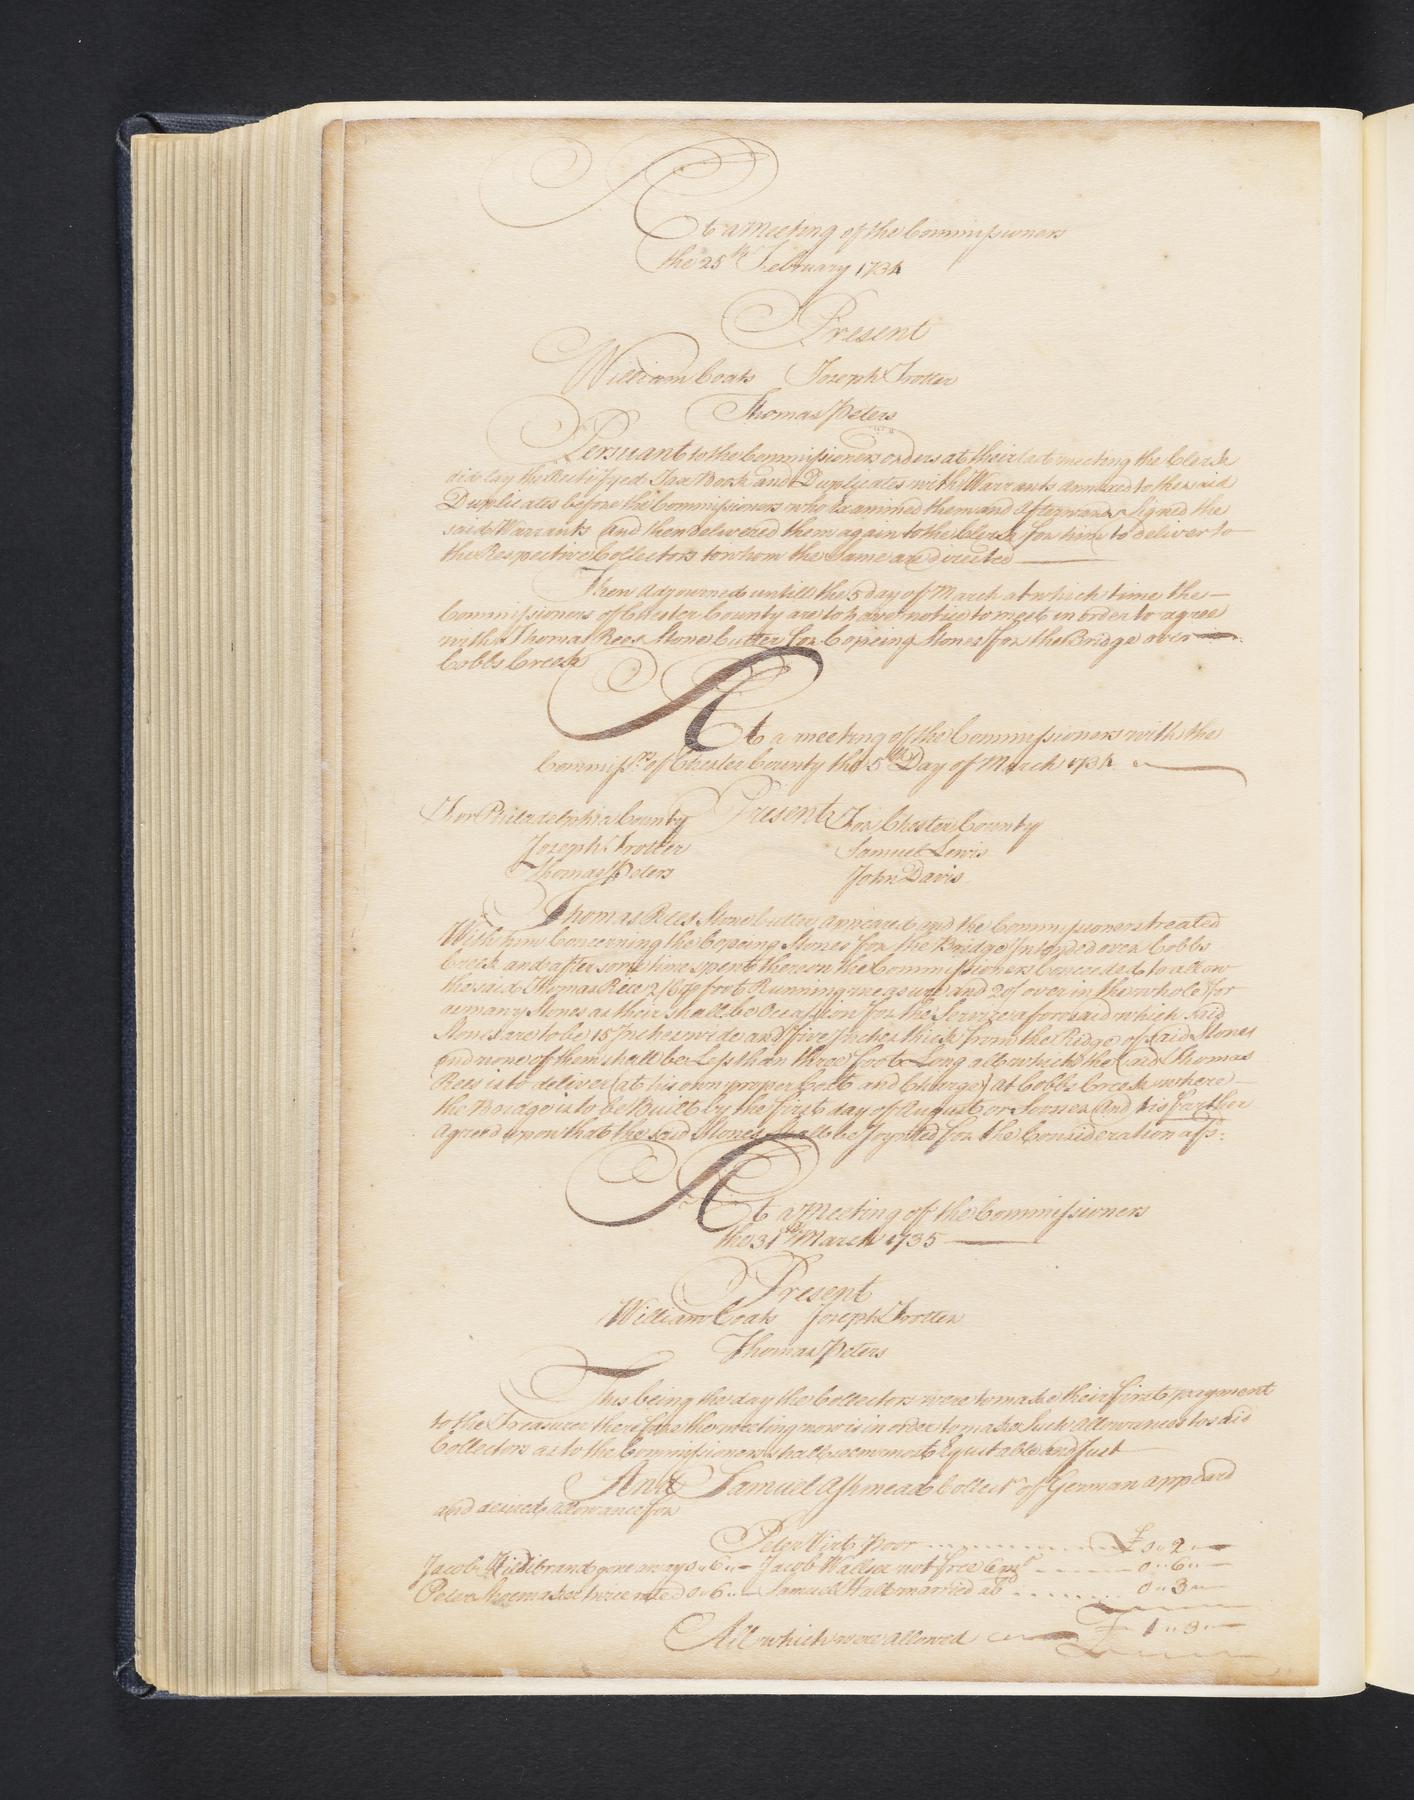 At a Meeting of the Commissioners
the 25th February 1734
Present
William Coats Joseph Trotter
Thomas Peters
Persuant to the Commissioners orders at their last meeting the Clerk
did lay the Rectifyed Tax Book and Duplicates with Warrants annexed to the said
Duplicates before the Commissioners who Examined them and afterwards Signed the
said Warrants And then delivered them again to the Clerk for him to deliver to
the Respective Collectors to whom the Same are directed
Then adjourned untill the 5 day of March at which time the
Commissioners of Chester County are to have notice to meet in order to agree
with Thomas Rees Stone Cutter for Copeing Stones for the Bridge over
Cobbs Creek
At a meeting of the Commissioners with the
Commissrs. of Chester County the 5th Day of March 1734
For Philadelphia County Present For Chester County
Joseph Trotter Samuel Lewis
Thomas Peters John Davis
Thomas Rees Stone Cutter appeared and the Commissioners treated
With him Concerning the Copeing Stones for the Bridge Intended over Cobbs
Creek and after some time spent thereon the Commissioners Conceeded to allow
the said Thomas Rees 2/6 foot Running measure and 20/ over in the whole for
as many Stones as their shall be Occassion for the Service aforesaid which said
Stones are to be 15 Inches wide and five Inches thick from the Ridge of said Stones
and none of them shall be Less than three foot Long all which the said Thomas
Rees is to deliver (at his own proper Cost and Charge) at Cobbs Creek where
the Bridge is to be Built by the first day of August or Sooner And tis farther
Agreed upon that the said Stones shall be Joynted for the Consideration afsd:
At a Meeting of the Commissioners
the 31th March 1735
Present
William Coats Joseph Trotter
Thomas Peters
This being the day the Collectors were to make their first payment
to the Treasurer therefore the meeting now is in order to make Such allowances to said
Collectors as to the Commissioners shall seem most Equitable and Just
And Samuel Ashmead Collectr of German appeard
and desired allowance for
Peter Wirt poor £ 0 .. 2 .. —
Jacob Hildibrand gone away 0 .. 6 .. — Jacob Wallser not free 0 .. 6 .. —
Peter Shoemaker twice rated 0 .. 6 .. — Samuel Hall married ab 0 .. 3 .. —
All which were allowed £ 1 .. 3 .. —